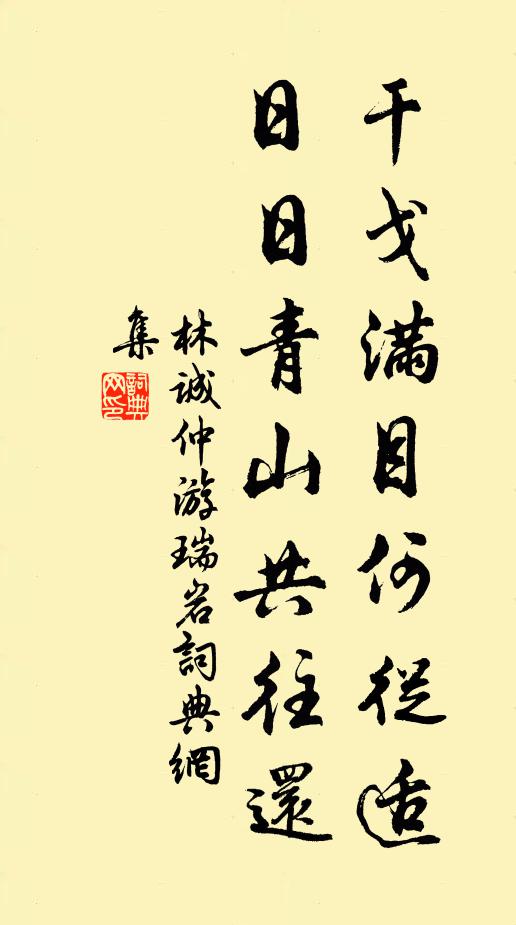 干戈满目何從适
日日青山共往還
林诚仲游瑞岩詞典網
集
詞典網印